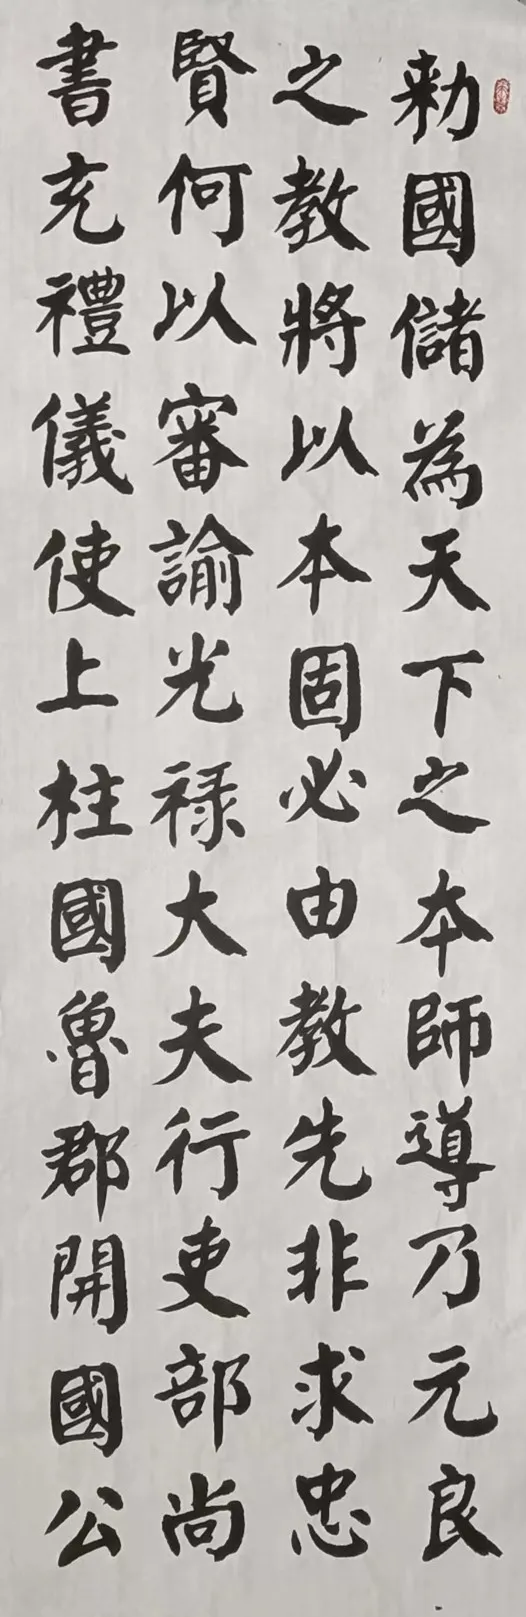 勅國儲為天下之本師導乃元良
之教將以本固必由教先非求忠
賢何以審諭光禄大夫行吏部尚
書充禮儀使上柱國魯郡開國公